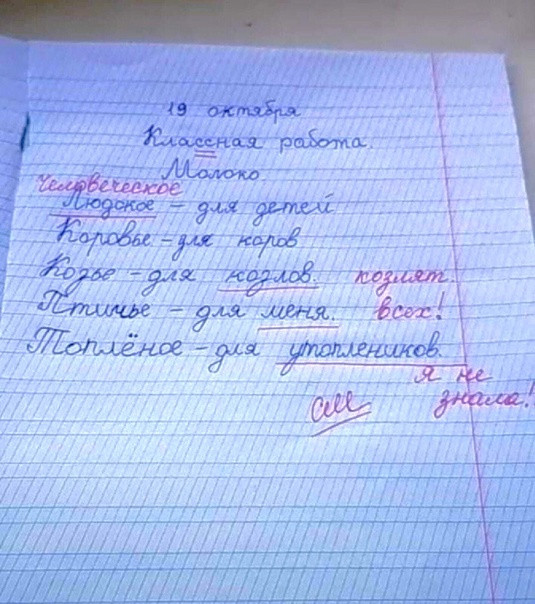 19 октября
Классная работа.
Молоко
человеческое
Людское – для детей
Коровье – для коров
Козье – для козлов. козлят.
Птичье – для меня. всех!
Топлёное – для утоплеников.
я не
знала!
См